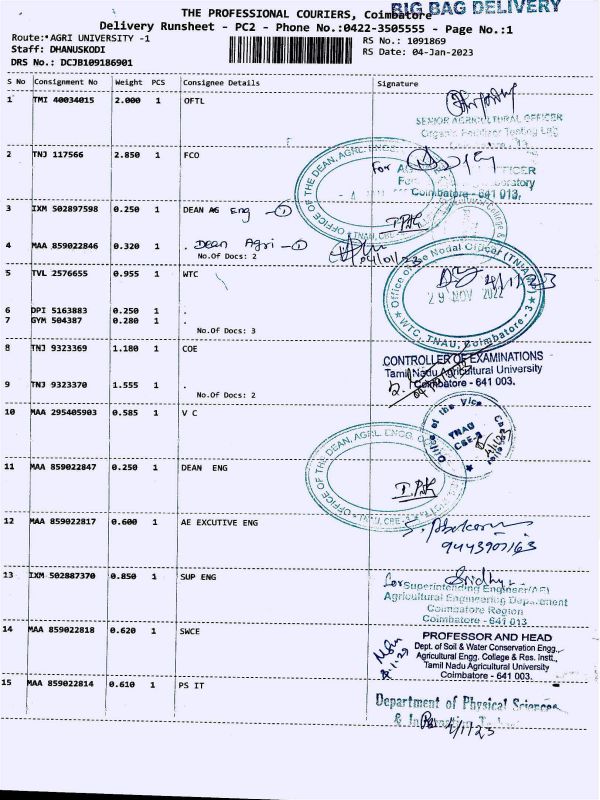 BIG BAG DELIVERY
THE PROFESSIONAL COURIERS, Coimbatore
Delivery Runsheet - PC2 - Phone No.:0422-3505555 - Page No.:1
Route:*AGRI UNIVERSITY -1
RS No.: 1091869
Staff: DHANUSKODI
RS Date: 04-Jan-2023
DRS No.: DCJB109186901
S No Consignment No Weight PCS Consignee Details Signature
1 TMI 40034015 2.000 1 OFTL
SENIOR AGRICULTURAL OFFICER
Organic Fertilizer Testing Lab
2 TNJ 117566 2.850 1 FCO
OFFICE OF THE DEAN, AGRL. ENGG.
For
Coimbatore - 641 013.
3 IXM 502897598 0.250 1 DEAN AG Eng - 1
4 MAA 859022846 0.320 1 . Dean Agri - 1
04/01/23
No.Of Docs: 2
5 TVL 2576655 0.955 1 WTC
Office of the Nodal Officer (TNIAM)
29 NOV 2022
WTC, TNAU, Coimbatore - 3
6 DPI 5163883 0.250 1 .
7 GYM 504387 0.280 1 .
No.Of Docs: 3
8 TNJ 9323369 1.180 1 COE
CONTROLLER OF EXAMINATIONS
Tamil Nadu Agricultural University
Coimbatore - 641 003.
9 TNJ 9323370 1.555 1 .
No.Of Docs: 2
10 MAA 295405903 0.585 1 V C
Office of the Vice
TNAU
CBE-3
OFFICE OF THE DEAN, AGRL. ENGG.
11 MAA 859022847 0.250 1 DEAN ENG
12 MAA 859022817 0.600 1 AE EXCUTIVE ENG
9443907163
13 IXM 502887370 0.850 1 SUP ENG
for Superintending Engineer(AE)
Agricultural Engineering Department
Coimbatore Region
Coimbatore - 641 013
14 MAA 859022818 0.620 1 SWCE
PROFESSOR AND HEAD
Dept. of Soil & Water Conservation Engg.,
Agricultural Engg. College & Res. Instt.,
Tamil Nadu Agricultural University
Coimbatore - 641 003.
15 MAA 859022814 0.610 1 PS IT
Department of Physical Sciences
4/1/23